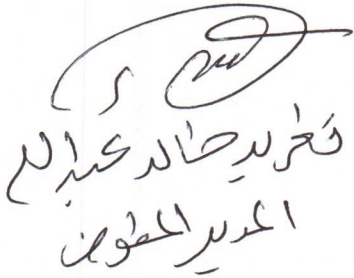 تغريد خالد عبدالله
المدير المفوض